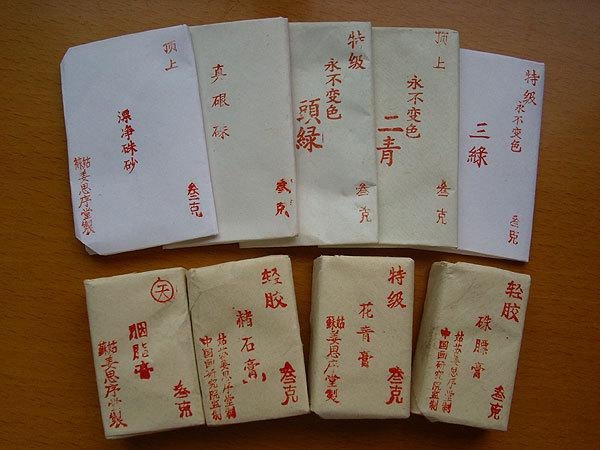 顶上
漂净硃砂
叁克
姑蘇姜思序堂製
真银硃
叁克
特级
永不变色
頭綠
叁克
顶上
永不变色
二青
叁克
特级
永不变色
三綠
叁克
天
胭脂膏
叁克
姑蘇姜思序堂製
轻胶
赭石膏
叁克
姑苏姜思序堂製
中国画研究院监制
特级
花青膏
叁克
姑蘇姜思序堂製
轻胶
硃膘膏
叁克
姑苏姜思序堂製
中国画研究院监制